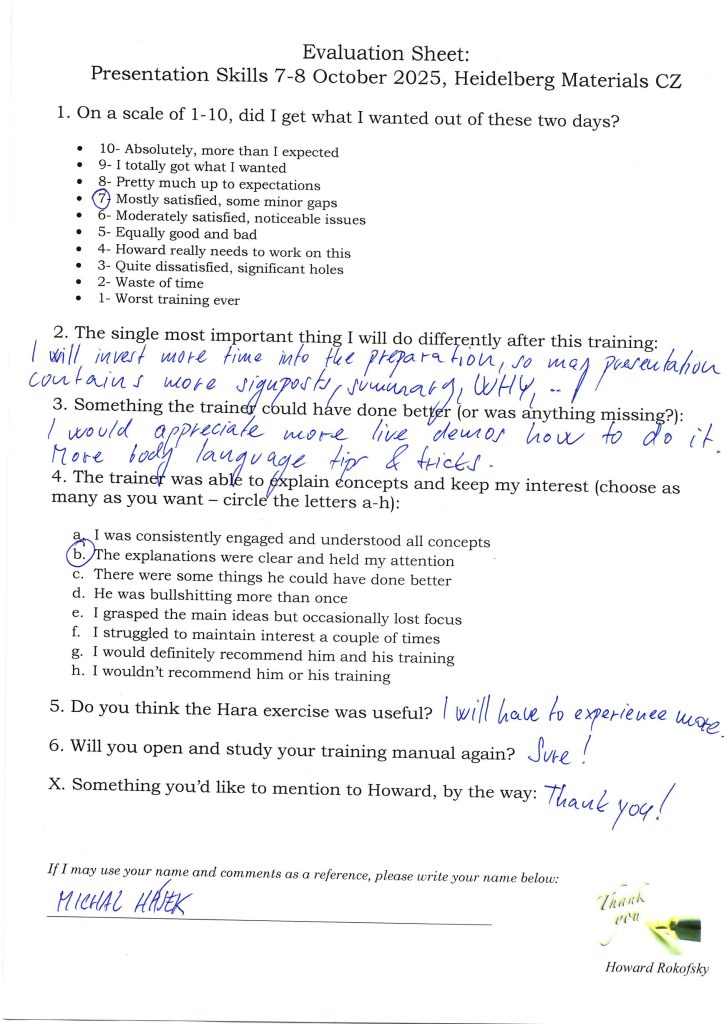 Evaluation Sheet:
Presentation Skills 7-8 October 2025, Heidelberg Materials CZ
1. On a scale of 1-10, did I get what I wanted out of these two days?
• 10- Absolutely, more than I expected
• 9- I totally got what I wanted
• 8- Pretty much up to expectations
• 7- Mostly satisfied, some minor gaps
• 6- Moderately satisfied, noticeable issues
• 5- Equally good and bad
• 4- Howard really needs to work on this
• 3- Quite dissatisfied, significant holes
• 2- Waste of time
• 1- Worst training ever
2. The single most important thing I will do differently after this training:
I will invest more time into the preparation, so may presentation
contains more signposts, summary, WHY, ...
3. Something the trainer could have done better (or was anything missing?):
I would appreciate more live demos how to do it.
More body language tips & tricks.
4. The trainer was able to explain concepts and keep my interest (choose as
many as you want – circle the letters a-h):
a. I was consistently engaged and understood all concepts
b. The explanations were clear and held my attention
c. There were some things he could have done better
d. He was bullshitting more than once
e. I grasped the main ideas but occasionally lost focus
f. I struggled to maintain interest a couple of times
g. I would definitely recommend him and his training
h. I wouldn't recommend him or his training
5. Do you think the Hara exercise was useful? I will have to experience more.
6. Will you open and study your training manual again? Sure!
X. Something you'd like to mention to Howard, by the way: Thank you!
If I may use your name and comments as a reference, please write your name below:
MICHAL HÁJEK
Thank
you
Howard Rokofsky